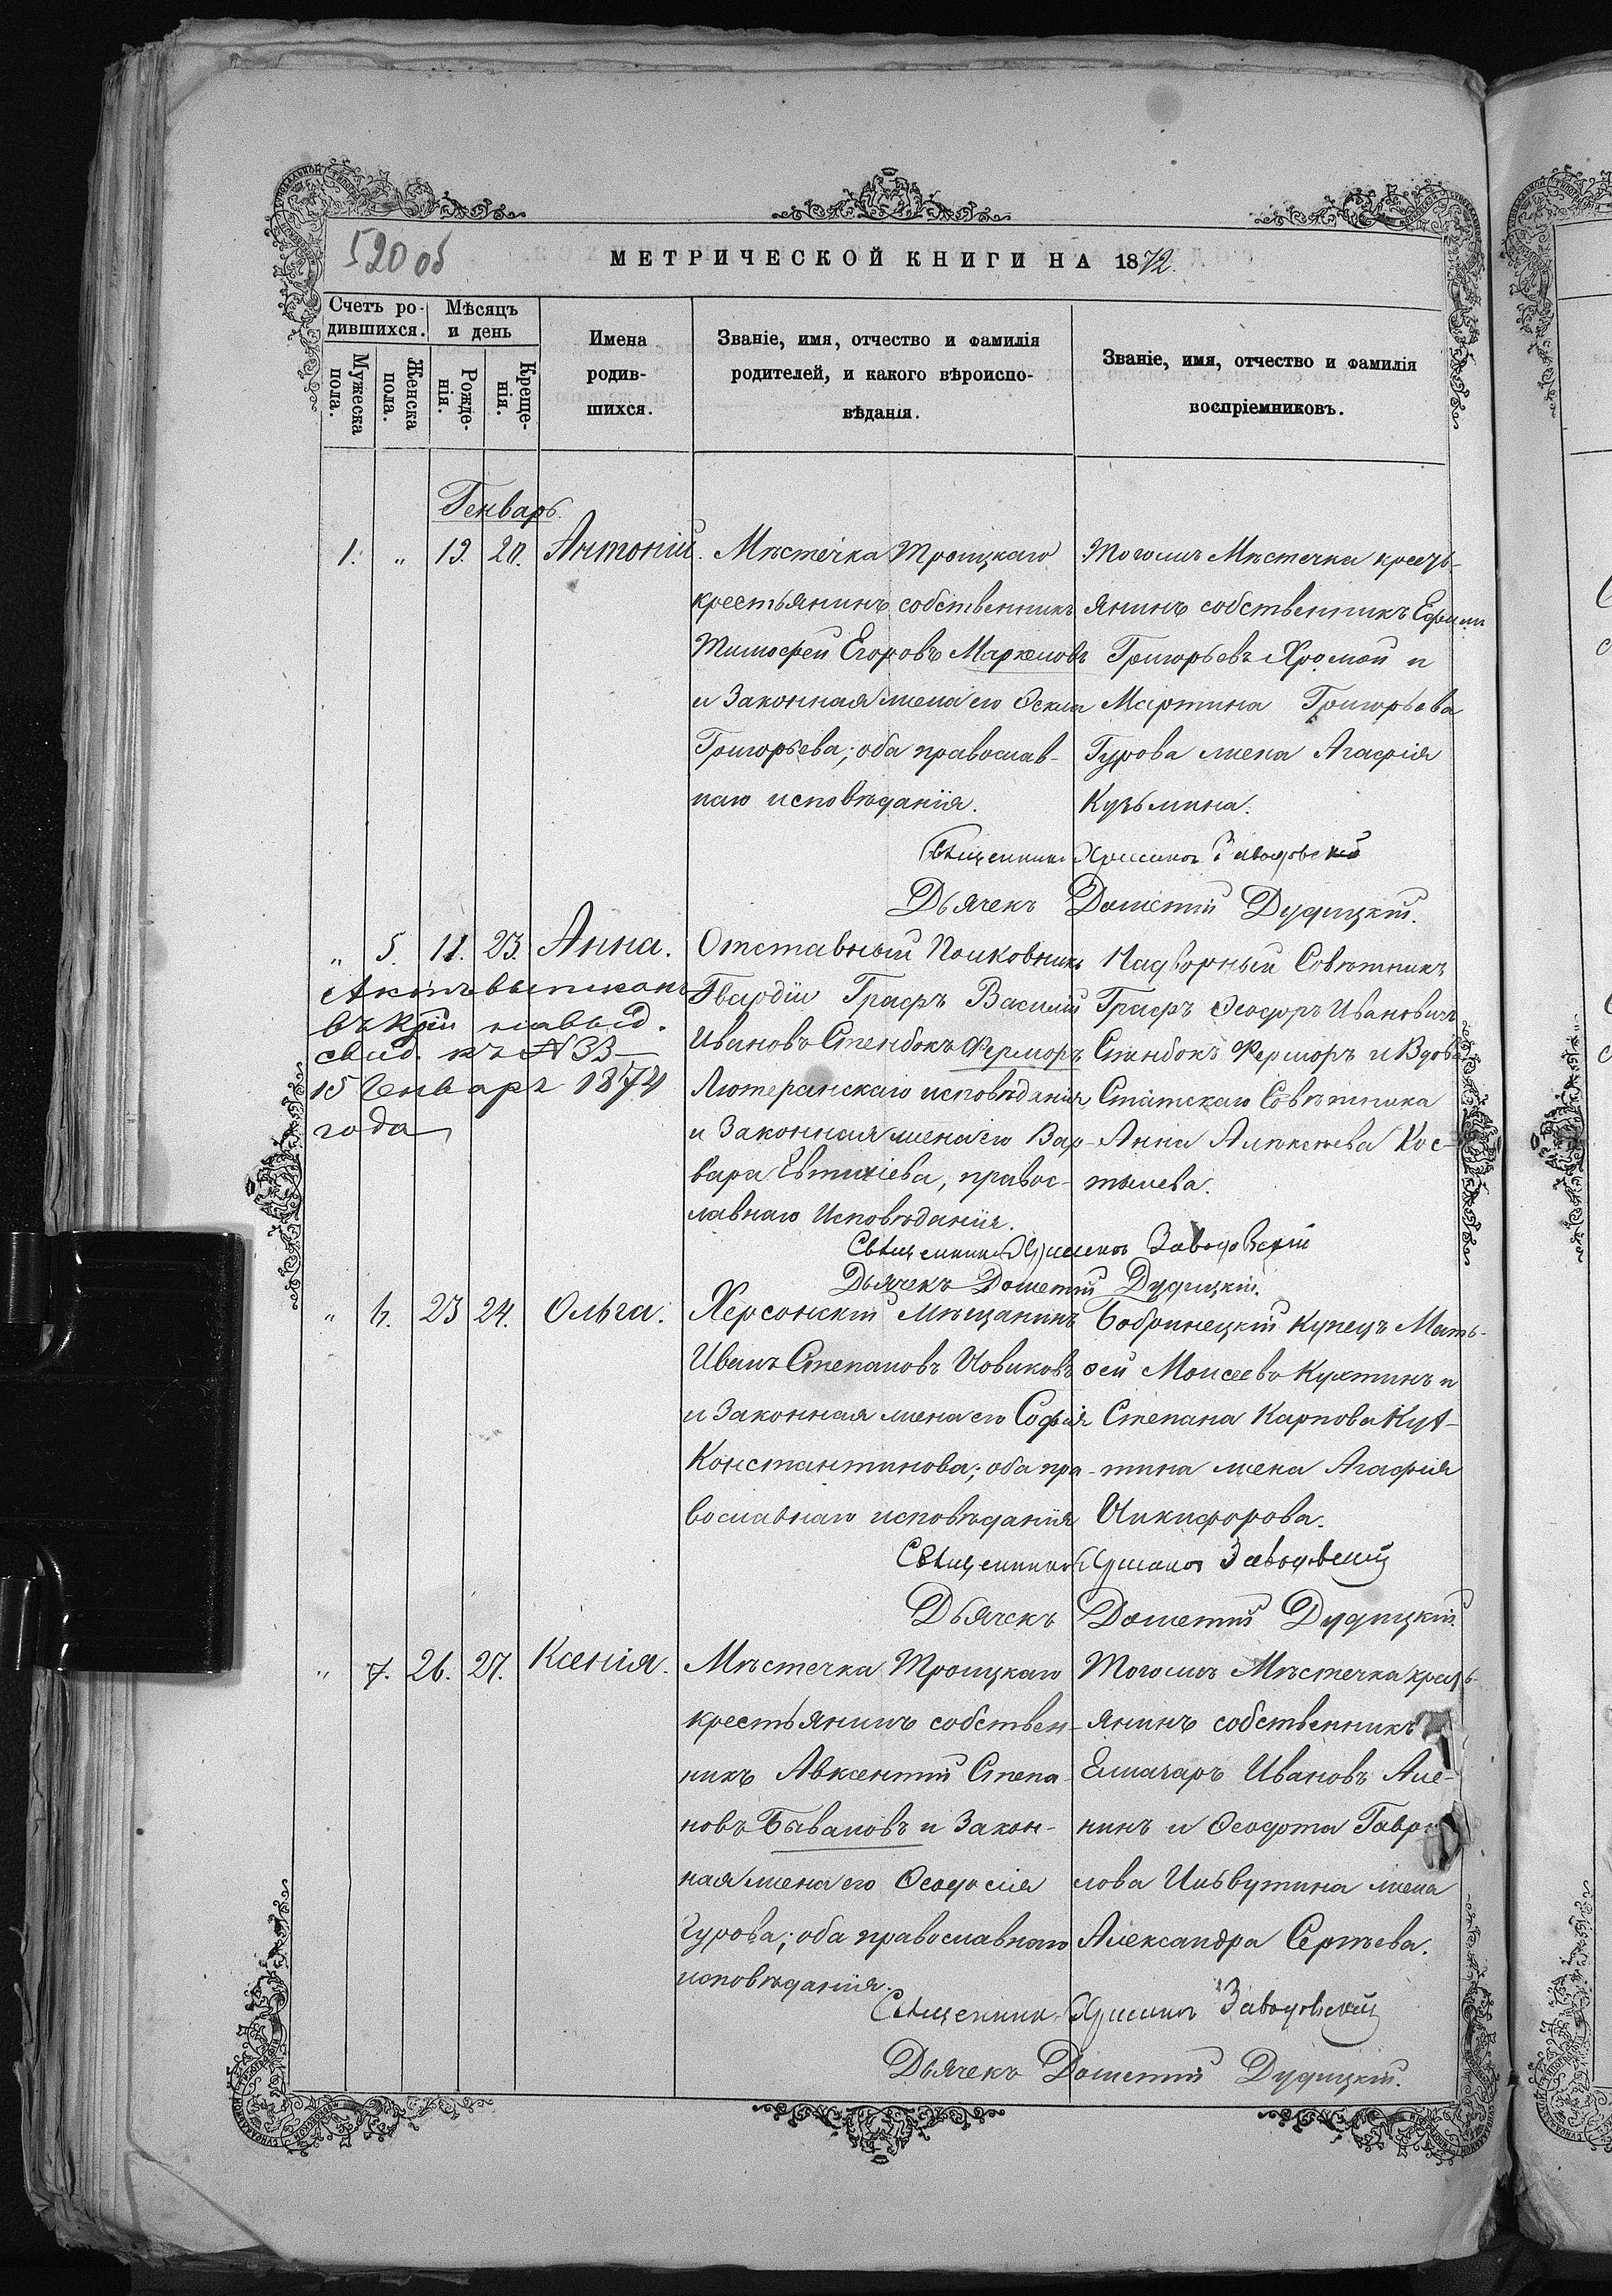 520 об
МЕТРИЧЕСКОЙ КНИГИ НА 1872.
Счетъ ро-
дившихся.
Мужеска
пола.
Женска
пола.
Мѣсяцъ
и день
Рожде-
нія.
Креще-
нія.
Имена
родив-
шихся.
Званіе, имя, отчество и фамилія
родителей, и какого вѣроиспо-
вѣданія.
Званіе, имя, отчество и фамилія
воспріемниковъ.
Генварь.
1. „ 19. 20. Антоній.
Мѣстечка Троицкаго
крестьянинъ собственникъ
Тимофей Егоровъ Маркеловъ
и Законная жена его
Григорьева; оба православ-
наго исповѣданія.
Тогожъ Мѣстечка кресть-
янинъ собственникъ Ефимъ
Григорьевъ Хромой и
Мартина Григорьева
Гурова жена Агафія
Кузьмина.
Священникъ Заводовскій
Дьячекъ Дометій Дудицкій.
„ 5. 11. 23. Анна.
Актъ выписанъ
въ навыд.
свид. къ № 33
15 Генваря 1874
года
Отставный Полковникъ
Гвардіи Графъ Василій
Ивановъ Стенбокъ Ферморъ
Лютеранскаго исповѣданія
и Законная жена его Вар-
вара Евтихіева, правос-
лавнаго Исповѣданія.
Надворный Совѣтникъ
Графъ Ѳеодоръ Ивановичъ
Стенбокъ Ферморъ и Вдова
Статскаго Совѣтника
Анна Алексѣева Кос-
тылева.
Священникъ Заводовскій
Дьячекъ Дометій Дудицкій.
„ 6. 23 24. Ольга.
Херсонскій Мѣщанинъ
Иванъ Степановъ Новиковъ
и Законная жена его Софія
Константинова; оба пра-
вославнаго исповѣданія
Бобринецкій Купецъ Мать-
ѳей Моисеевъ Кухтинъ и
Степана Карпова Кух-
тина жена Агафія
Никифорова.
Священникъ Заводовскій
Дьячекъ Дометій Дудицкій.
„ 7. 26. 27. Ксенія.
Мѣстечка Троицкаго
крестьянинъ собствен-
никъ Авксентій Степа-
новъ Бываловъ и Закон-
ная жена его Ѳеодосія
Гурова; оба православнаго
исповѣданія.
Тогожъ Мѣстечка кресть-
янинъ собственникъ
Ивановъ Але-
нинъ и Ѳеодота
жена
Александра Сергѣева.
Священникъ Заводовскій
Дьячекъ Дометій Дудицкій.